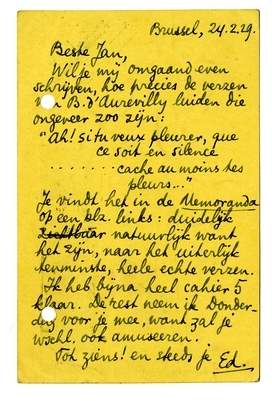 Brussel, 24.2.29.
Beste Jan,
Wil je mij omgaand even
schrijven, hoe precies de verzen
van B. d'Aurevilly luiden die
ongeveer zoo zijn:
"Ah! si tu veux pleurer, que
ce soit en silence
........ cache au moins tes
pleurs..."
Je vindt het in de Memoranda
op een blz. links: duidelijk
zichtbaar natuurlijk want
het zijn, naar het uiterlijk
tenminste, heele echte verzen.
Ik heb bijna heel cahier 5
klaar. De rest neem ik Donder-
dag voor je mee, want zal je
wschl. ook amuseeren.
Tot ziens! en steeds je Ed.